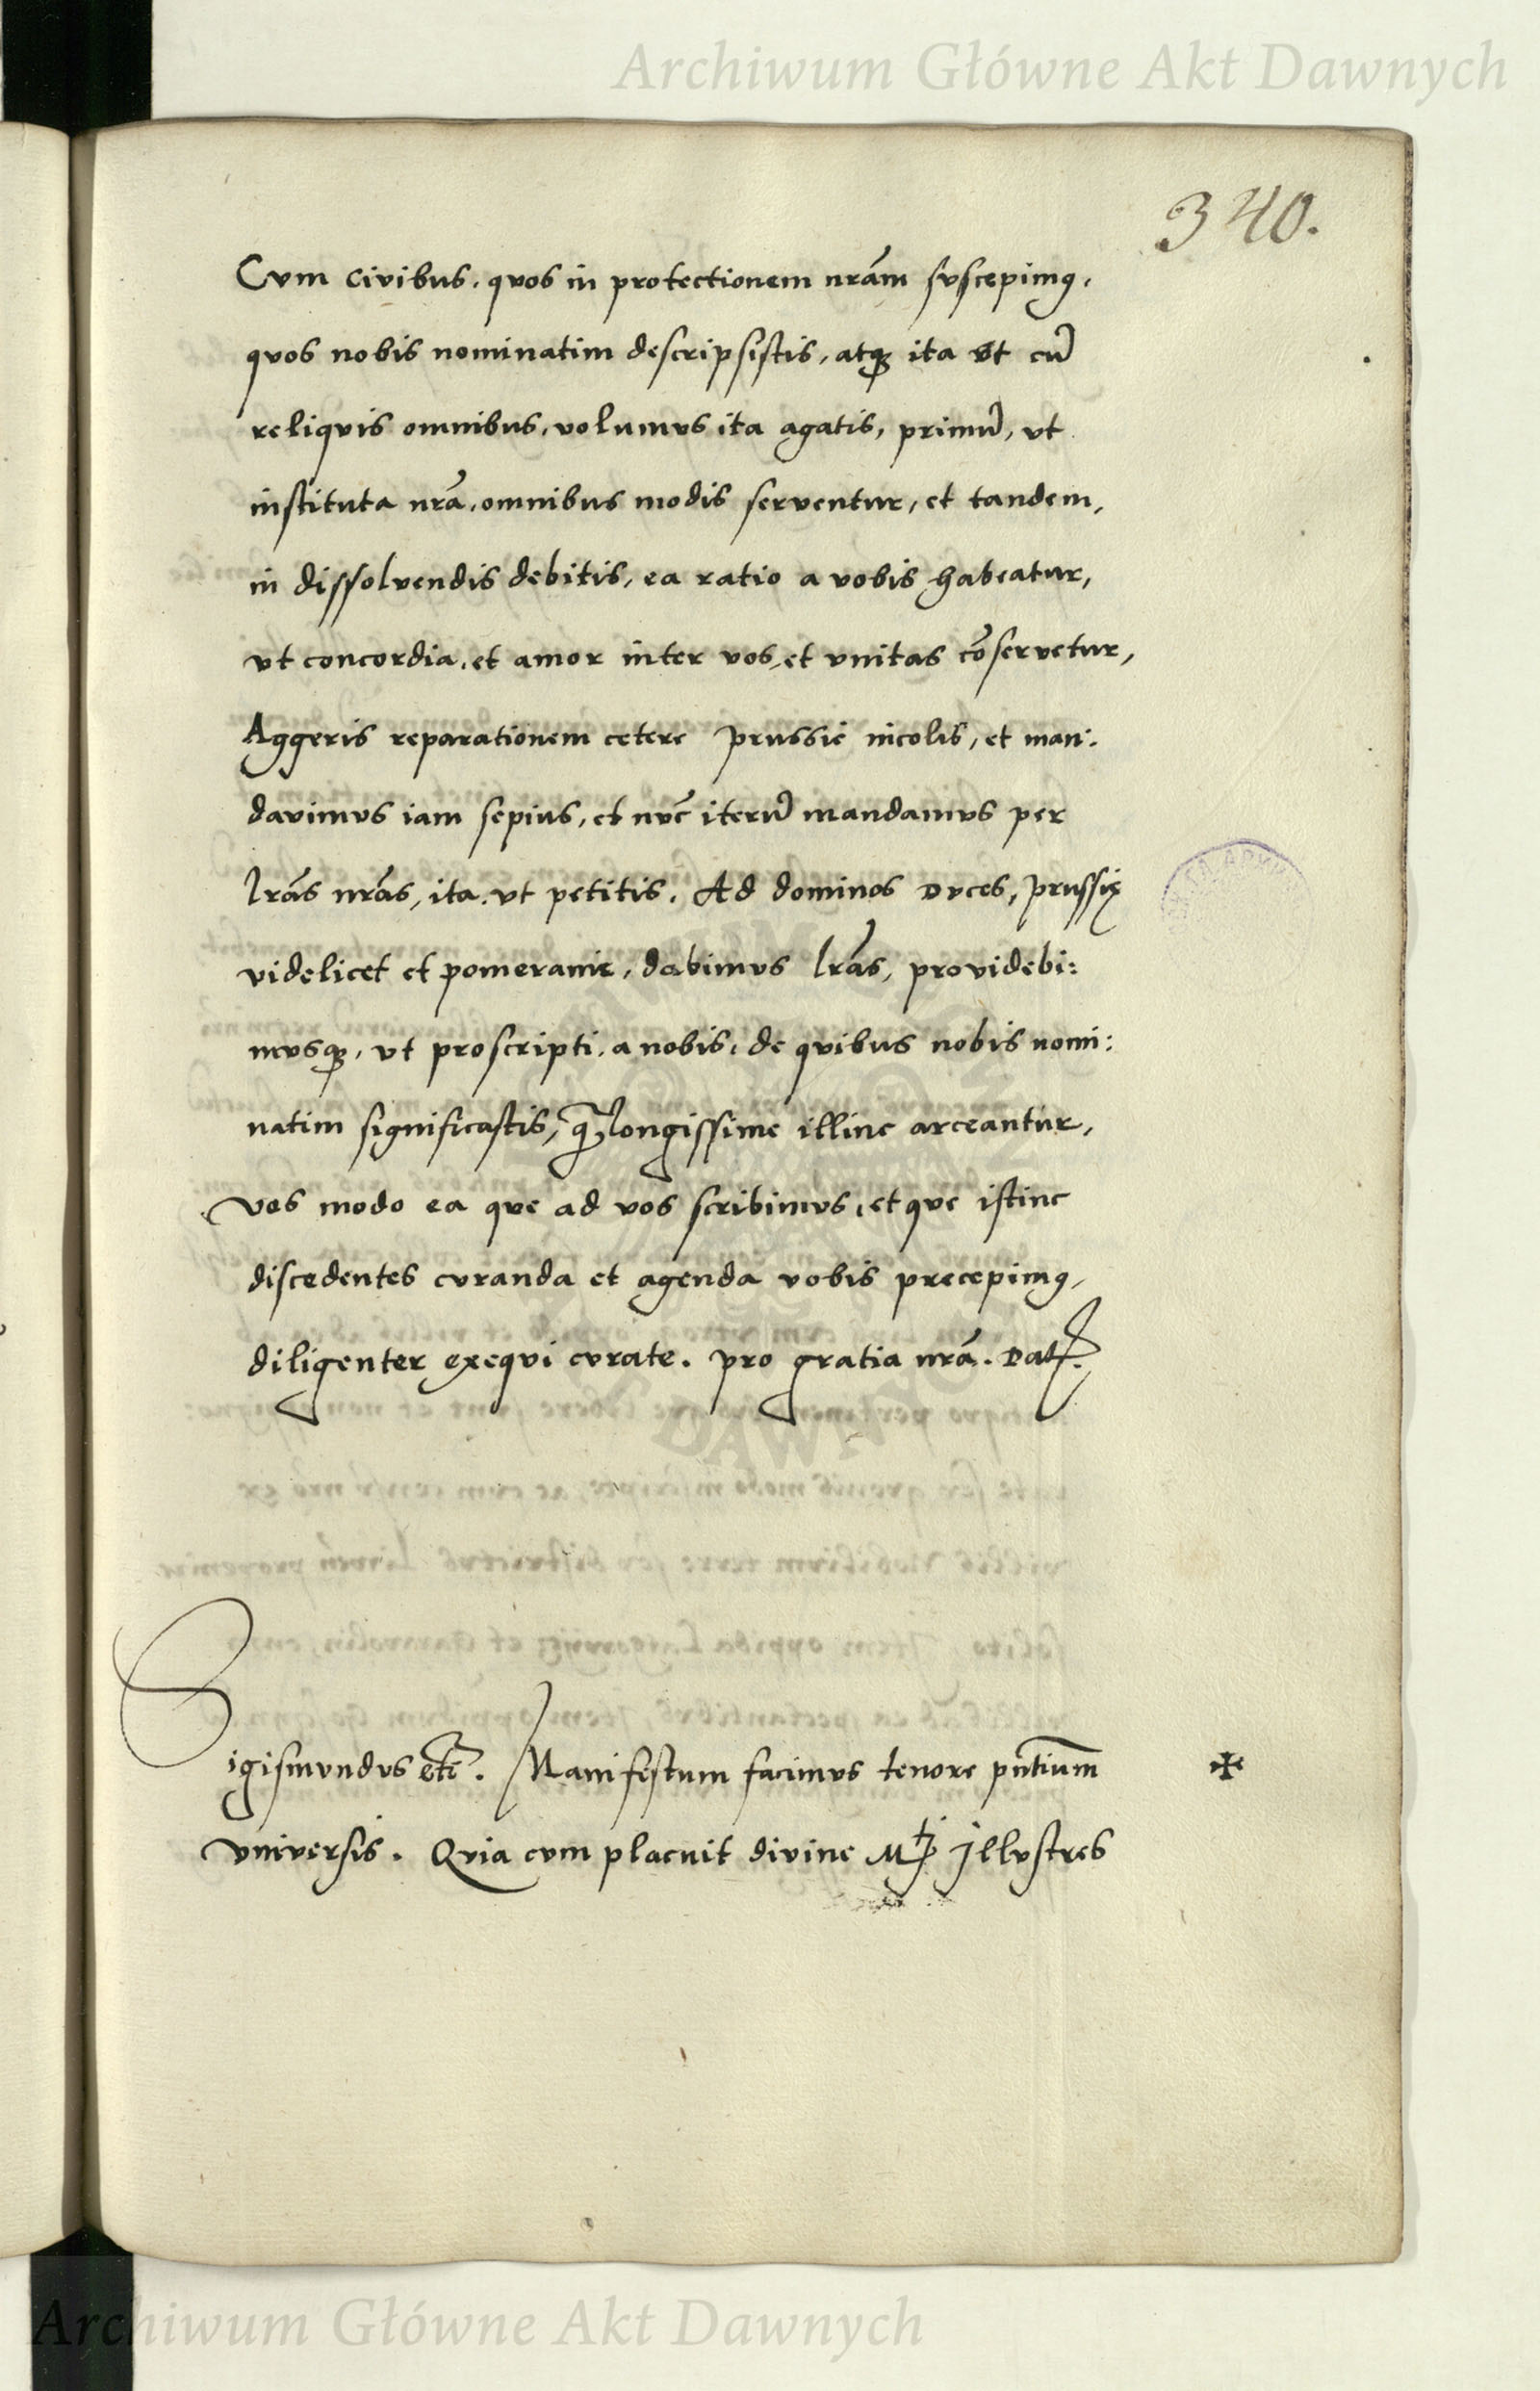 Archiwum Główne Akt Dawnych
340.
Cvm civibus, qvos in protectionem nrãm svscepimꝯ,
qvos nobis nominatim descripsistis, atqꝫ ita vt cũ
reliqvis omnibus, volumvs ita agatis, primũ, vt
instituta nrã, omnibus modis serventur, et tandem,
in dissolvendis debitis, ea ratio a vobis habeatur,
vt concordia, et amor inter vos, et vnitas cõservetur,
Aggeris reparationem cetere prussie incolis, et man:
davimvs iam sepius, et nvc̃ iterũ mandamvs per
lrãs nrãs, ita vt petitis. Ad dominos dvces, prussię
videlicet et pomeranie, dabimvs lrãs, providebi:
mvsqꝫ, vt proscripti, a nobis, de qvibus nobis nomi:
natim significastis, q̃ longissime illinc arceantur,
vos modo ea qve ad vos scribimvs, et qve istinc
discedentes cvranda et agenda vobis precepimꝯ,
diligenter exeqvi cvrate. pro gratia nrã. Dat.
Sigismvndvs etc̃. Manifestum facimvs tenore pñtium
vniversis. Qvia cvm placuit divine Mti Jllvstres
✠
Archiwum Główne Akt Dawnych